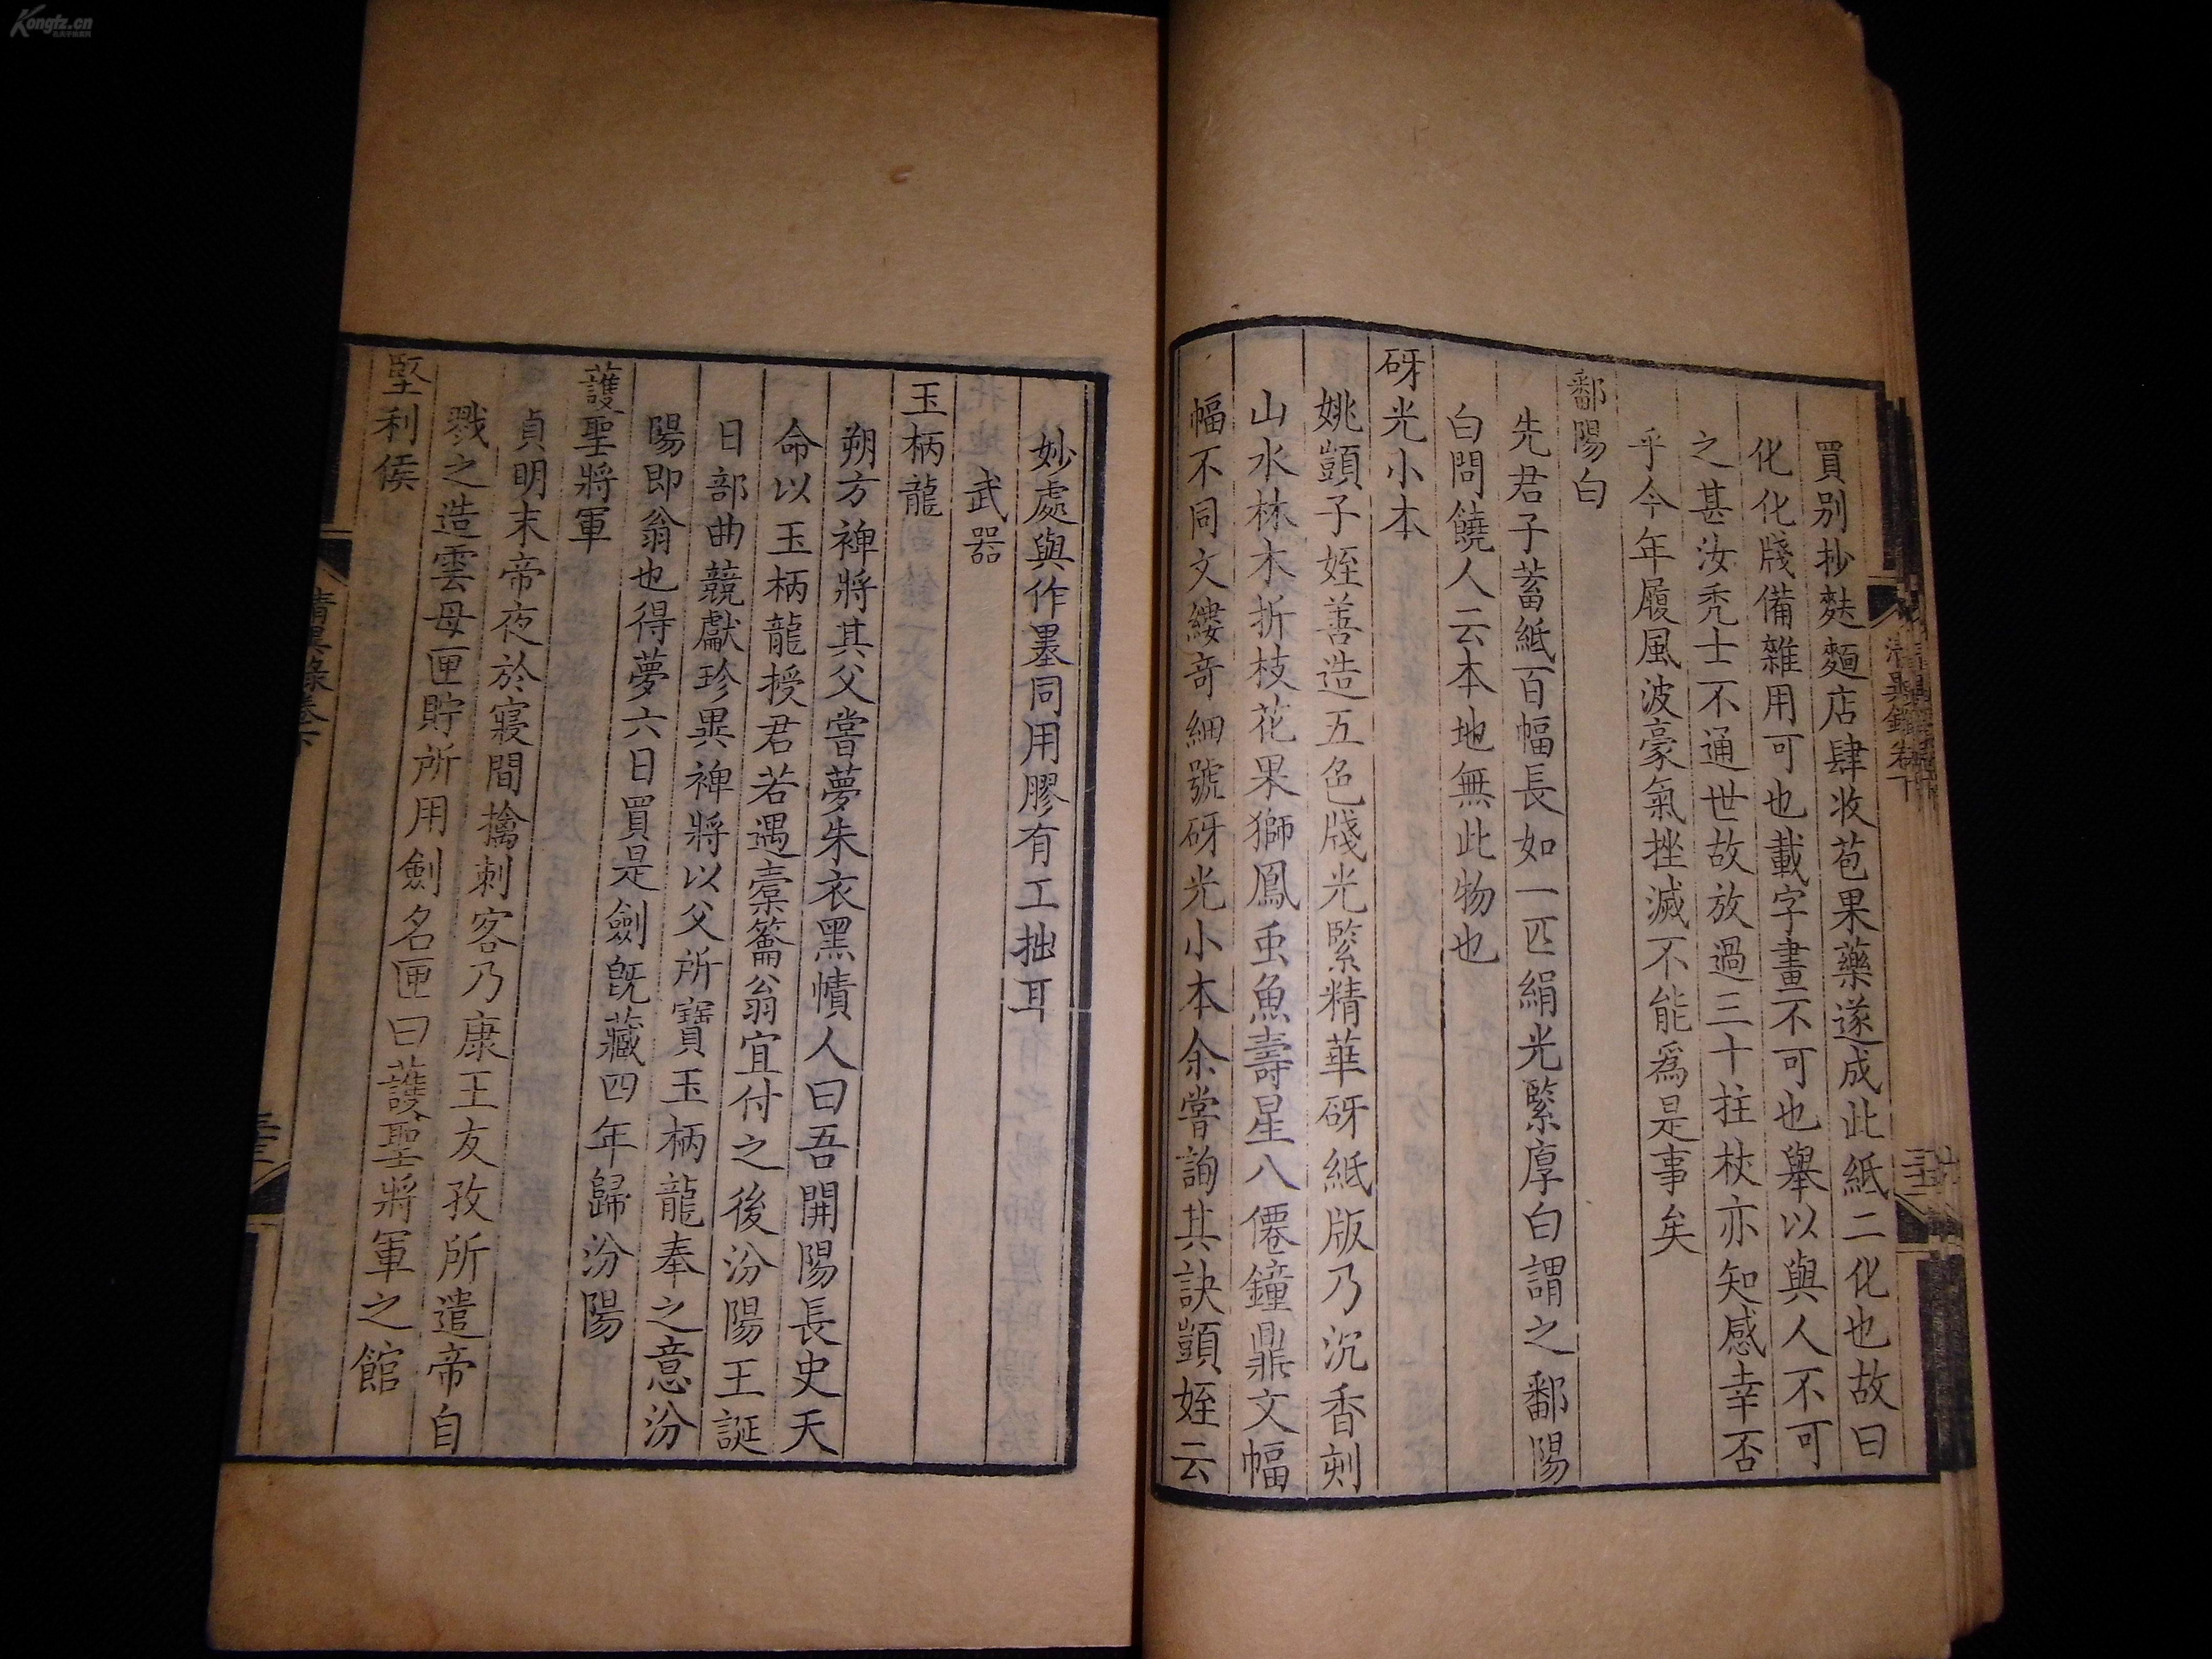 買别抄麩麵店肆收苞果藥遂成此紙二化也故曰
化化牋備雜用可也載字畫不可也舉以與人不可
之甚汝禿士不通世故放過三十拄杖亦知感幸否
乎今年履風波豪氣挫滅不能爲是事矣
鄱陽白
先君子蓄紙百幅長如一匹絹光緊厚白謂之鄱陽
白問饒人云本地無此物也
砑光小本
姚顗子姪善造五色牋光緊精華砑紙版乃沉香刻
山水林木折枝花果獅鳳虫魚壽星八僊鐘鼎文幅
幅不同文縷奇細號砑光小本余嘗詢其訣顗姪云
妙處與作墨同用膠有工拙耳
武器
玉柄龍
朔方裨將其父嘗夢朱衣黑幘人曰吾開陽長史天
命以玉柄龍授君若遇橐籥翁宜付之後汾陽王誕
日部曲競獻珍異裨將以父所寶玉柄龍奉之意汾
陽即翁也得夢六日買是劍旣藏四年歸汾陽
護聖將軍
貞明末帝夜於寢間擒刺客乃康王友孜所遣帝自
戮之造雲母匣貯所用劍名匣曰護聖將軍之館
堅利侯
清異錄卷下
清異錄卷下
Kongfz.cn